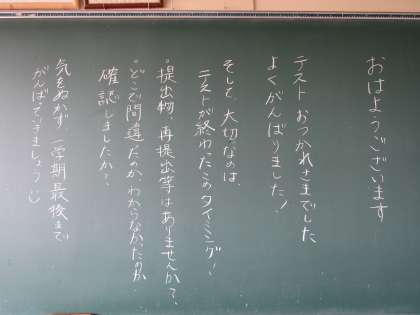 おはようございます
テスト おつかれさまでした
よくがんばりました!
そして、大切なのは、
テストが終わったこのタイミング!
・提出物、再提出等はありませんか?
・どこで間違ったのか、わからなかったのか
確認しましたか?
気をぬかず、一学期最後まで
がんばっていきましょう